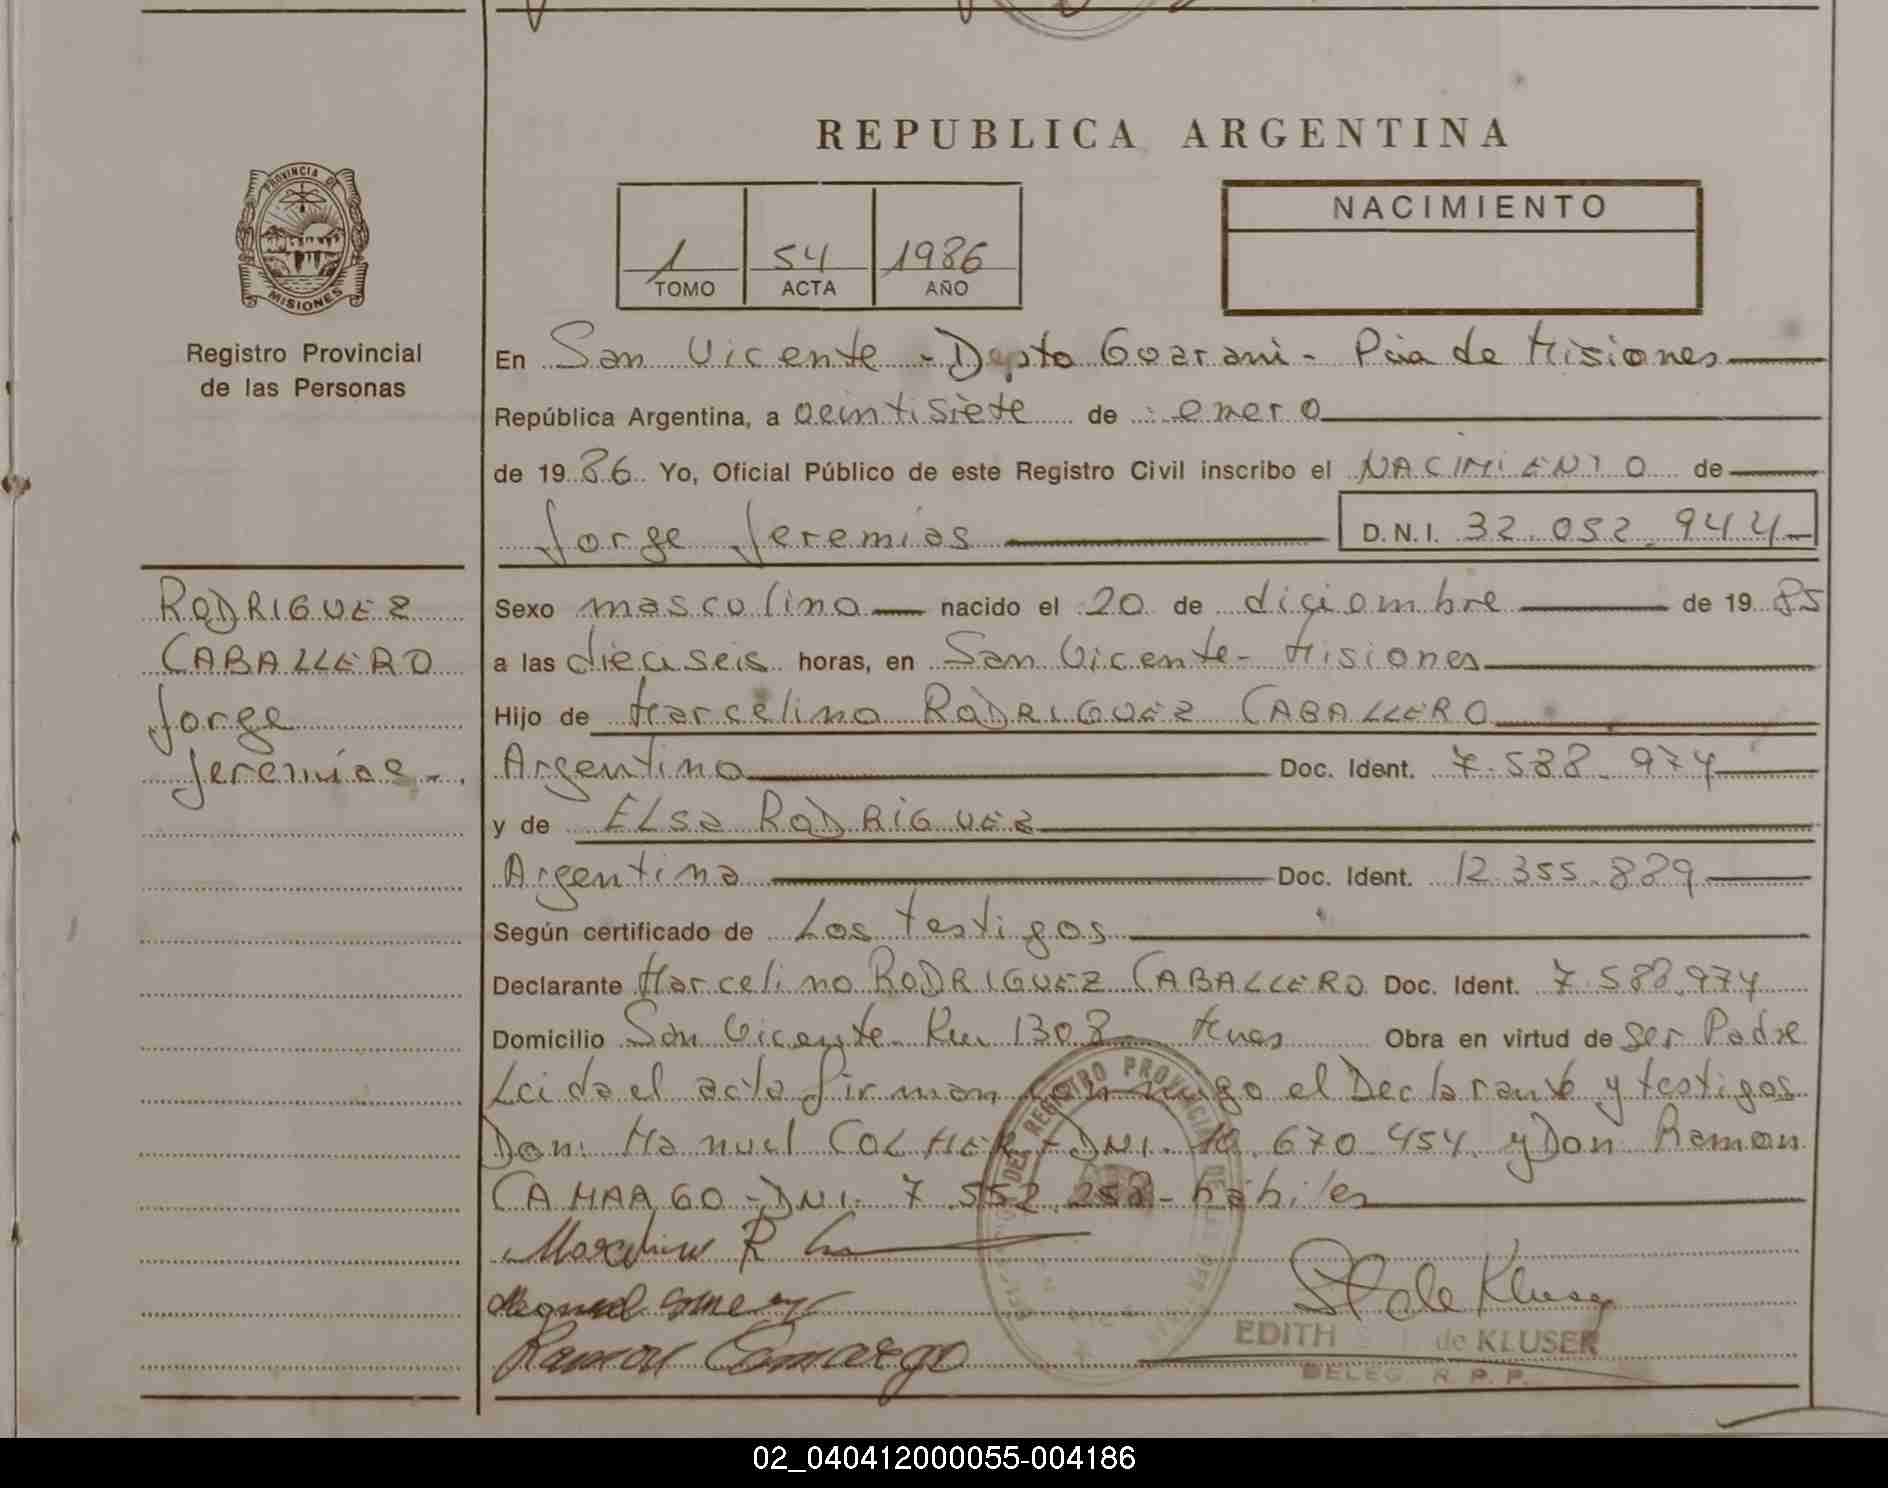 REPUBLICA ARGENTINA
PROVINCIA DE
MISIONES
Registro Provincial
de las Personas
1 54 1986
TOMO ACTA AÑO
NACIMIENTO
En San Vicente - Depto Guarani - Pcia de Misiones
República Argentina, a veintisiete de enero
de 1986 Yo, Oficial Público de este Registro Civil inscribo el NACIMIENTO de
Jorge Jeremias D.N.I. 32.052.944
RODRIGUEZ
CABALLERO
Jorge
Jeremias
Sexo masculino nacido el 20 de diciembre de 1985
a las dieciseis horas, en San Vicente - Misiones
Hijo de Marcelino RODRIGUEZ CABALLERO
Argentino Doc. Ident. 7.588.974
y de ELsa RODRIGUEZ
Argentina Doc. Ident. 12.355.889
Según certificado de Los testigos
Declarante Marcelino RODRIGUEZ CABALLERO Doc. Ident. 7.588.974
Domicilio San Vicente Km 1308 - Mnes Obra en virtud de ser Padre
Leida el acta firman conmigo el Declarante y testigos
Don: Manuel COLMER - DNI. 10.670.454 y Don Ramon
CAMARGO - DNI. 7.552.258 - habiles
Marcelino R
Ramon Camargo
de Kluser
EDITH de KLUSER
DELEG. R. P. P.
DEL REGISTRO PROVINCIAL DE
02_040412000055-004186